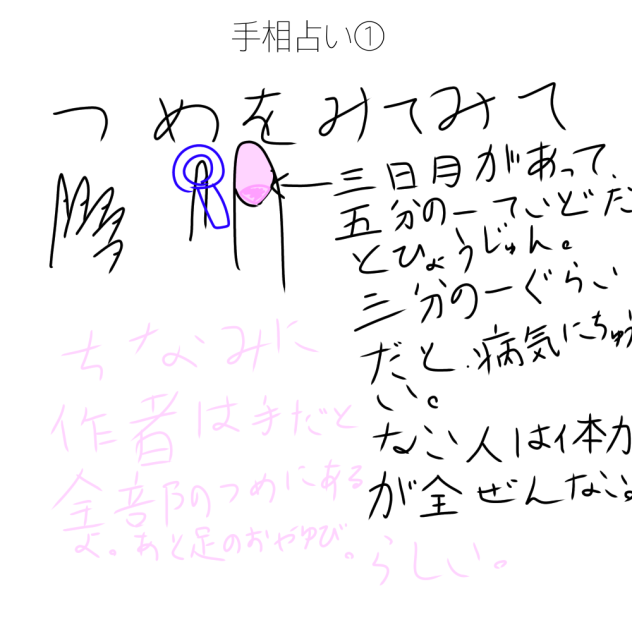 手相占い①
つめをみてみて
三日月があって、
五分の一ていどだ
とひょうじゅん。
三分の一ぐらい
だと、病気にちゅう
い。
ない人は体力
が全ぜんない。
ちなみに
作者は手だと
全部のつめにある
よ。あと足のおやゆび。
らしい。